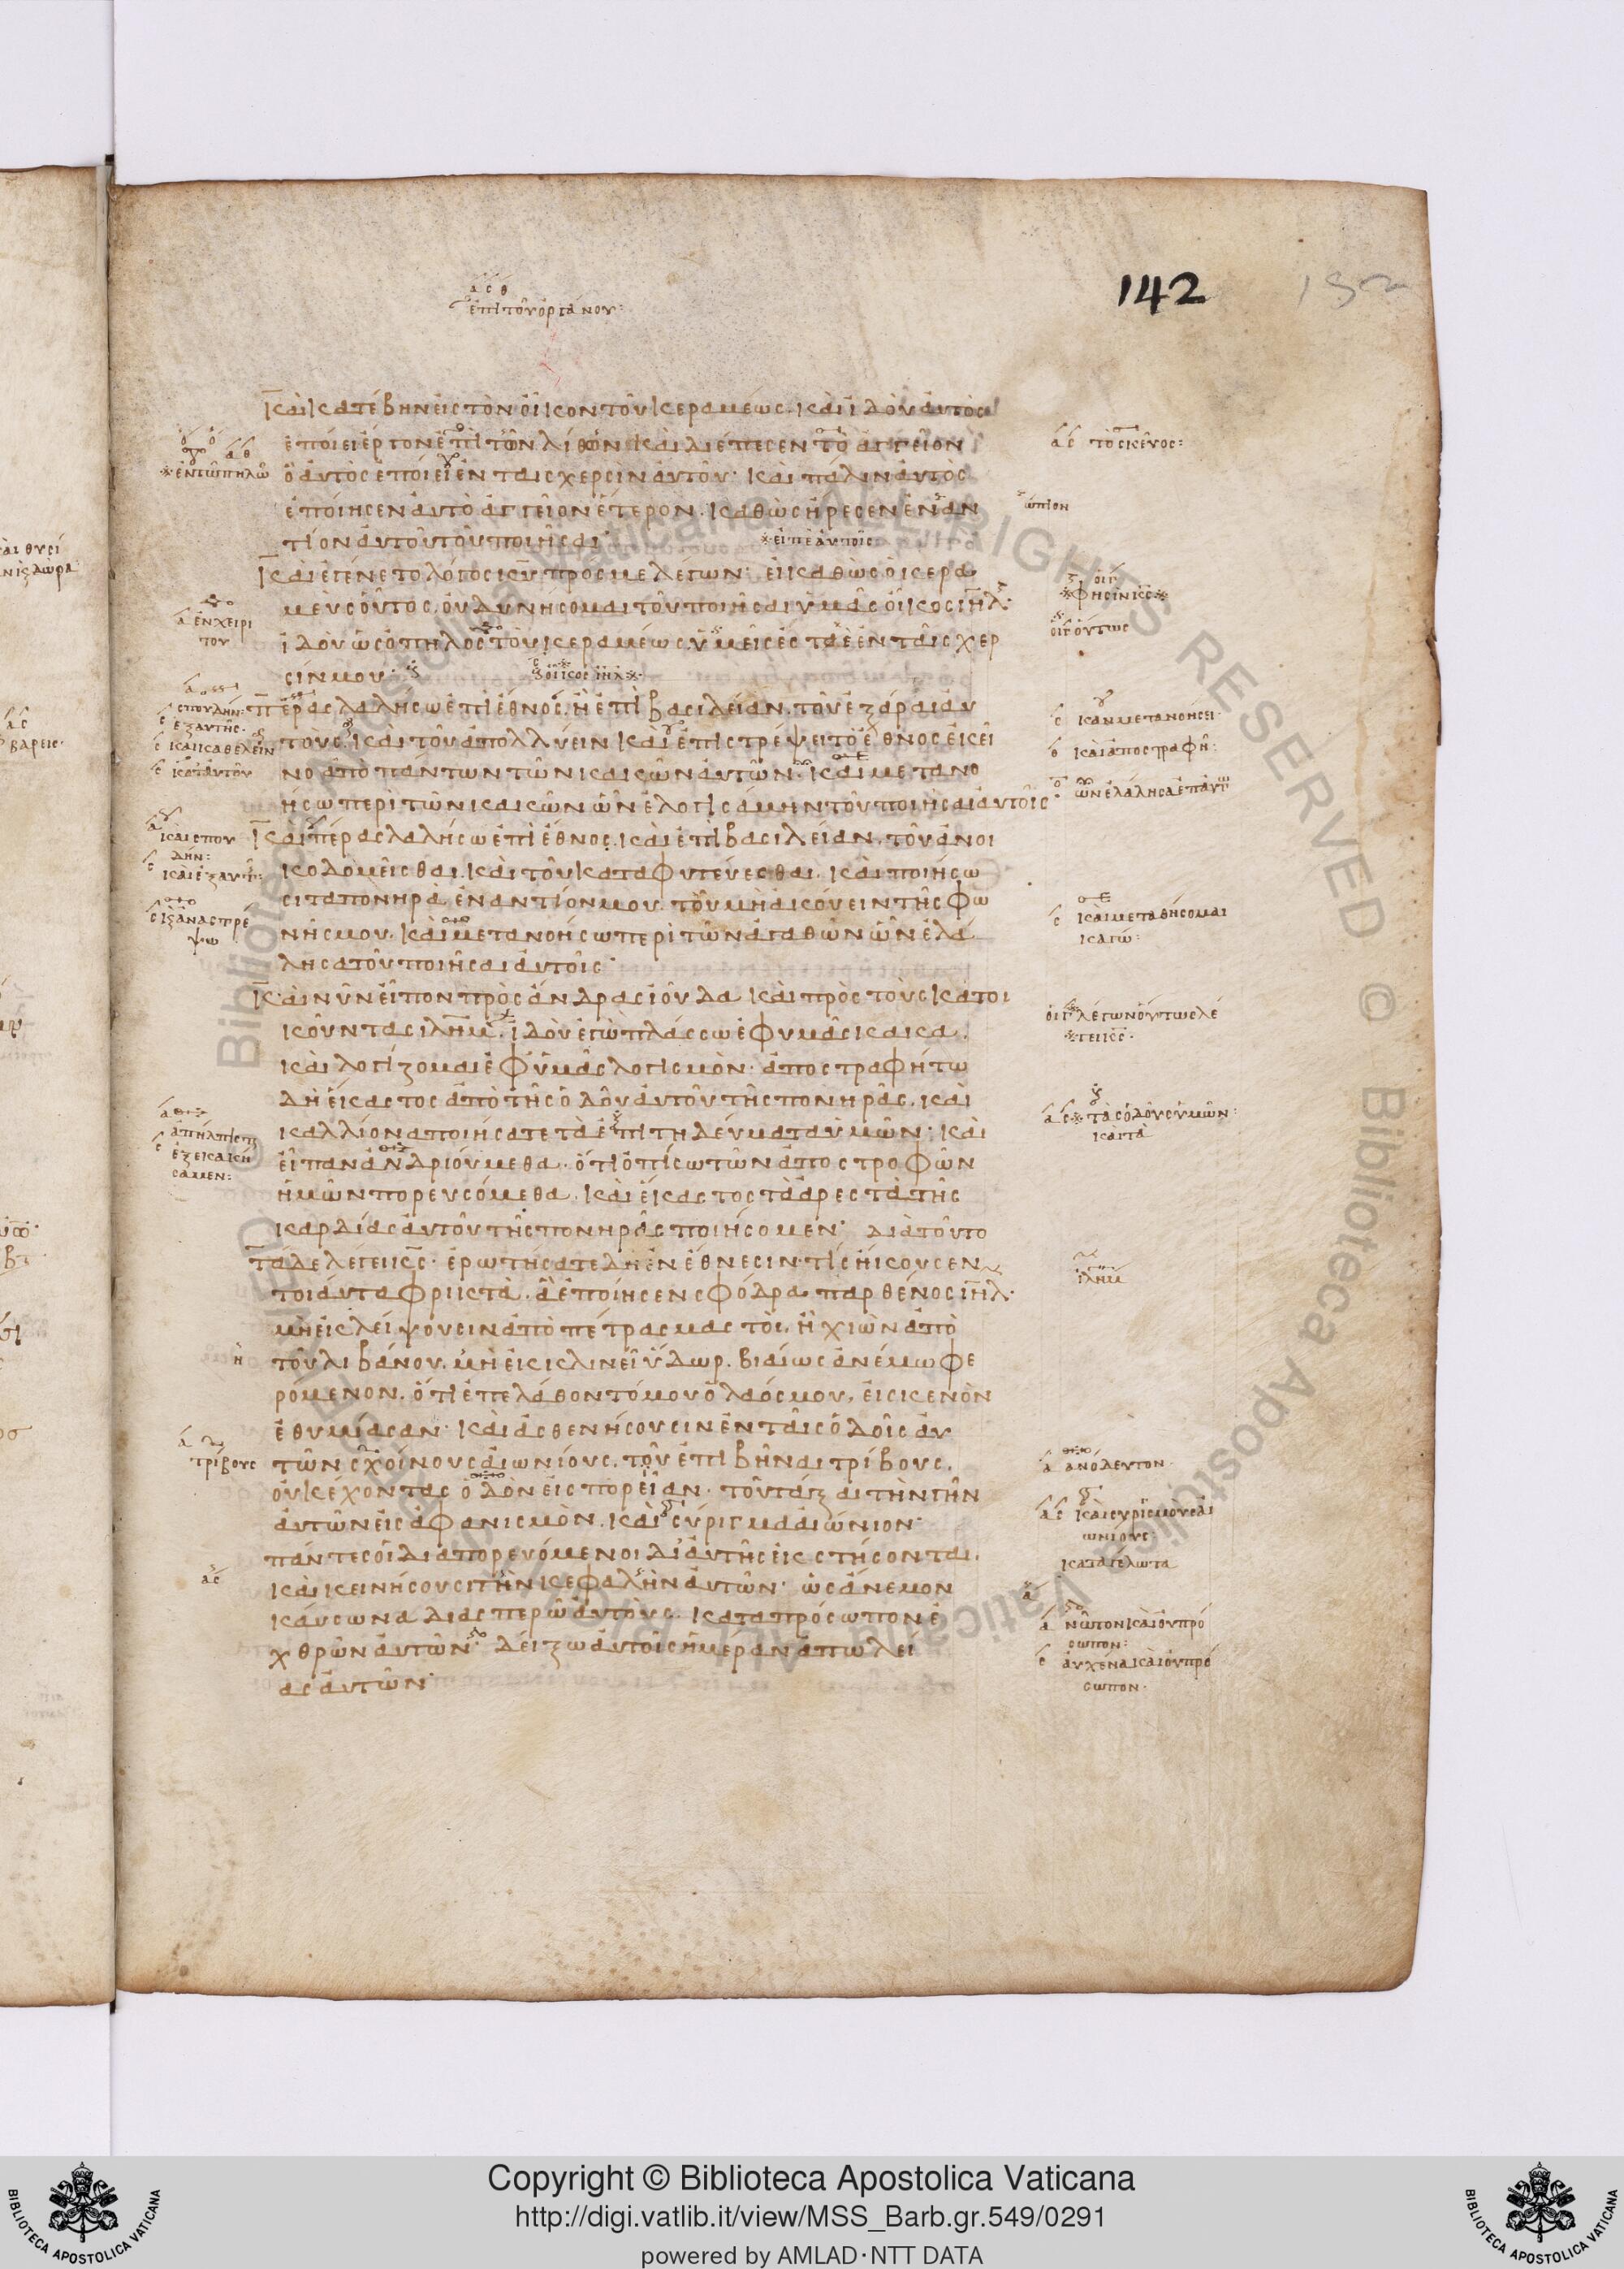 142
ἐπὶ τοῦ ὀργάνου:
καὶ κατέβην εἰς τὸν οἶκον τοῦ κεραμέως. καὶ ἰδοὺ αὐτὸς
ἐποίει ἔργον ἐπὶ τῶν λίθων καὶ διέπεσεν τὸ ἀγγεῖον
ὃ αὐτὸς ἐποίει ἐν ταῖς χερσὶν αὐτοῦ· καὶ πάλιν αὐτὸς
ἐποίησεν αὐτὸ ἀγγεῖον ἕτερον. καθὼς ἤρεσεν ἐναν
τίον αὐτοῦ τοῦ ποιῆσαι·
καὶ ἐγένετο λόγος κυ πρός με λέγων· εἰ καθὼς ὁ κερα
μεὺς οὗτος, οὐ δυνήσομαι τοῦ ποιῆσαι ὑμᾶς οἶκος ιηλ·
ἰδοὺ ὡς ὁ πηλὸς τοῦ κεραμέως ὑμεῖς ἐστὲ ἐν ταῖς χερ
σίν μου·
πέρας λαλήσω ἐπὶ ἔθνος. ἢ ἐπὶ βασιλείαν. τοῦ ἐξάραι αὐ
τοὺς. καὶ τοῦ ἀπολλύειν καὶ ἐπιστρέψει τὸ ἔθνος ἐκεῖ
νο ἀπὸ πάντων τῶν κακῶν αὐτῶν· καὶ μετανο
ήσω περὶ τῶν κακῶν ὧν ἐλογισάμην τοῦ ποιῆσαι αὐτοῖς·
καὶ πέρας λαλήσω ἐπὶ ἔθνος. καὶ ἐπὶ βασιλείαν. τοῦ ἀνοι
κοδομεῖσθαι. καὶ τοῦ καταφυτεύεσθαι. καὶ ποιήσω
σι τα πονηρὰ ἐναντίον μου. τοῦ μὴ ἀκούειν τῆς φω
νῆς μου. καὶ μετανοήσω περὶ τῶν ἀγαθῶν ὧν ἐλά
λησα τοῦ ποιῆσαι αὐτοῖς·
καὶ νῦν εἶπον πρὸς ἄνδρας ἰούδα καὶ πρὸς τοὺς κατοι
κοῦντας ιλημ. ἰδοὺ ἐγὼ πλάσσω ἐφ υμᾶς κακα.
καὶ λογίζομαι ἐφ ὑμᾶς λογισμὸν· ἀποστραφήτω
δὴ ἕκαστος ἀπὸ τῆς ὁδοῦ αὐτοῦ τῆς πονηρᾶς. καὶ
καλλίονα ποιήσατε τὰ ἐπιτηδεύματα ὑμῶν· καὶ
εἶπαν ἀνδριούμεθα. ὅτι ὀπίσω τῶν ἀποστροφῶν
ἡμῶν πορευσόμεθα. καὶ ἕκαστος τὰ ἀρεστὰ τῆς
καρδίας αὐτοῦ τῆς πονηρᾶς ποιήσομεν· διὰ τοῦτο
τάδε λέγει κς· ἐρωτήσατε δὴ ἐν ἔθνεσιν· τίς ἤκουσεν
τοιαῦτα φρικτὰ. ἃ ἐποίησεν σφόδρα παρθένος ιηλ·
μὴ ἐκλείψουσιν ἀπὸ πέτρας μαστοὶ. ἢ χιὼν ἀπὸ
τοῦ λιβάνου. μὴ ἐκκλινεῖ ὕδωρ. βιαίως ἀνέμω φε
ρόμενον. ὅτι ἐπελάθοντό μου ὁ λαός μου, εἰς κενὸν
ἐθυμίασαν· καὶ ἀσθενήσουσιν ἐν ταῖς ὁδοῖς αὐ
τῶν σχοίνους αἰωνίους. τοῦ ἐπιβῆναι τρίβους.
οὐκ ἔχοντας ὁδὸν εἰς πορείαν. τοῦ τάξαι τὴν γῆν
αὐτῶν εἰς ἀφανισμὸν. καὶ σύριγμα αἰώνιον·
πάντες οἱ διαπορευόμενοι δι αὐτῆς ἐκστήσονται.
καὶ κεινήσουσι τὴν κεφαλὴν αὐτῶν· ὡς ἄνεμον
καύσωνα διασπερῶ αὐτοὺς. κατα πρόσωπον ἐ
χθρῶν αὐτῶν· δείξω αὐτοῖς ἡμέραν ἀπωλεί
ας αὐτῶν·
ἐν τῶ πηλῶ
ἐν χειρί
του
σπουδήν:
ἐξαυτῆς·
καὶ καθελεῖν
κατ αὐτοῦ
καὶ σπου
δήν:
τρίβους
τὸ σκεῦος:
ώπιον
εἶπε αὐτοῖς
φησὶν κς
οὕτως
οἶκος ιηλ
κἂν μετανοήσει·
καὶ ἀποστραφῆ:
ὧν ἐλάλησα ἐπ αὐτ
καὶ μεταθήσομαι
κἀγώ:
λέγων οὕτως λέ
γει κς·
τὰς ὁδοὺς ὑμῶν:
καὶ τὰ
ιλημ
ἀνόδευτον·
καὶ συρισμοὺς αἰ
ωνίους·
καταγέλωτα
νῶτον καὶ οὐ πρό
σωπον:
αὐχένα καὶ οὐ πρό
σωπον·
Copyright © Biblioteca Apostolica Vaticana
http://digi.vatlib.it/view/MSS_Barb.gr.549/0291
powered by AMLAD·NTT DATA
BIBLIOTECA APOSTOLICA VATICANA
BIBLIOTECA APOSTOLICA VATICANA